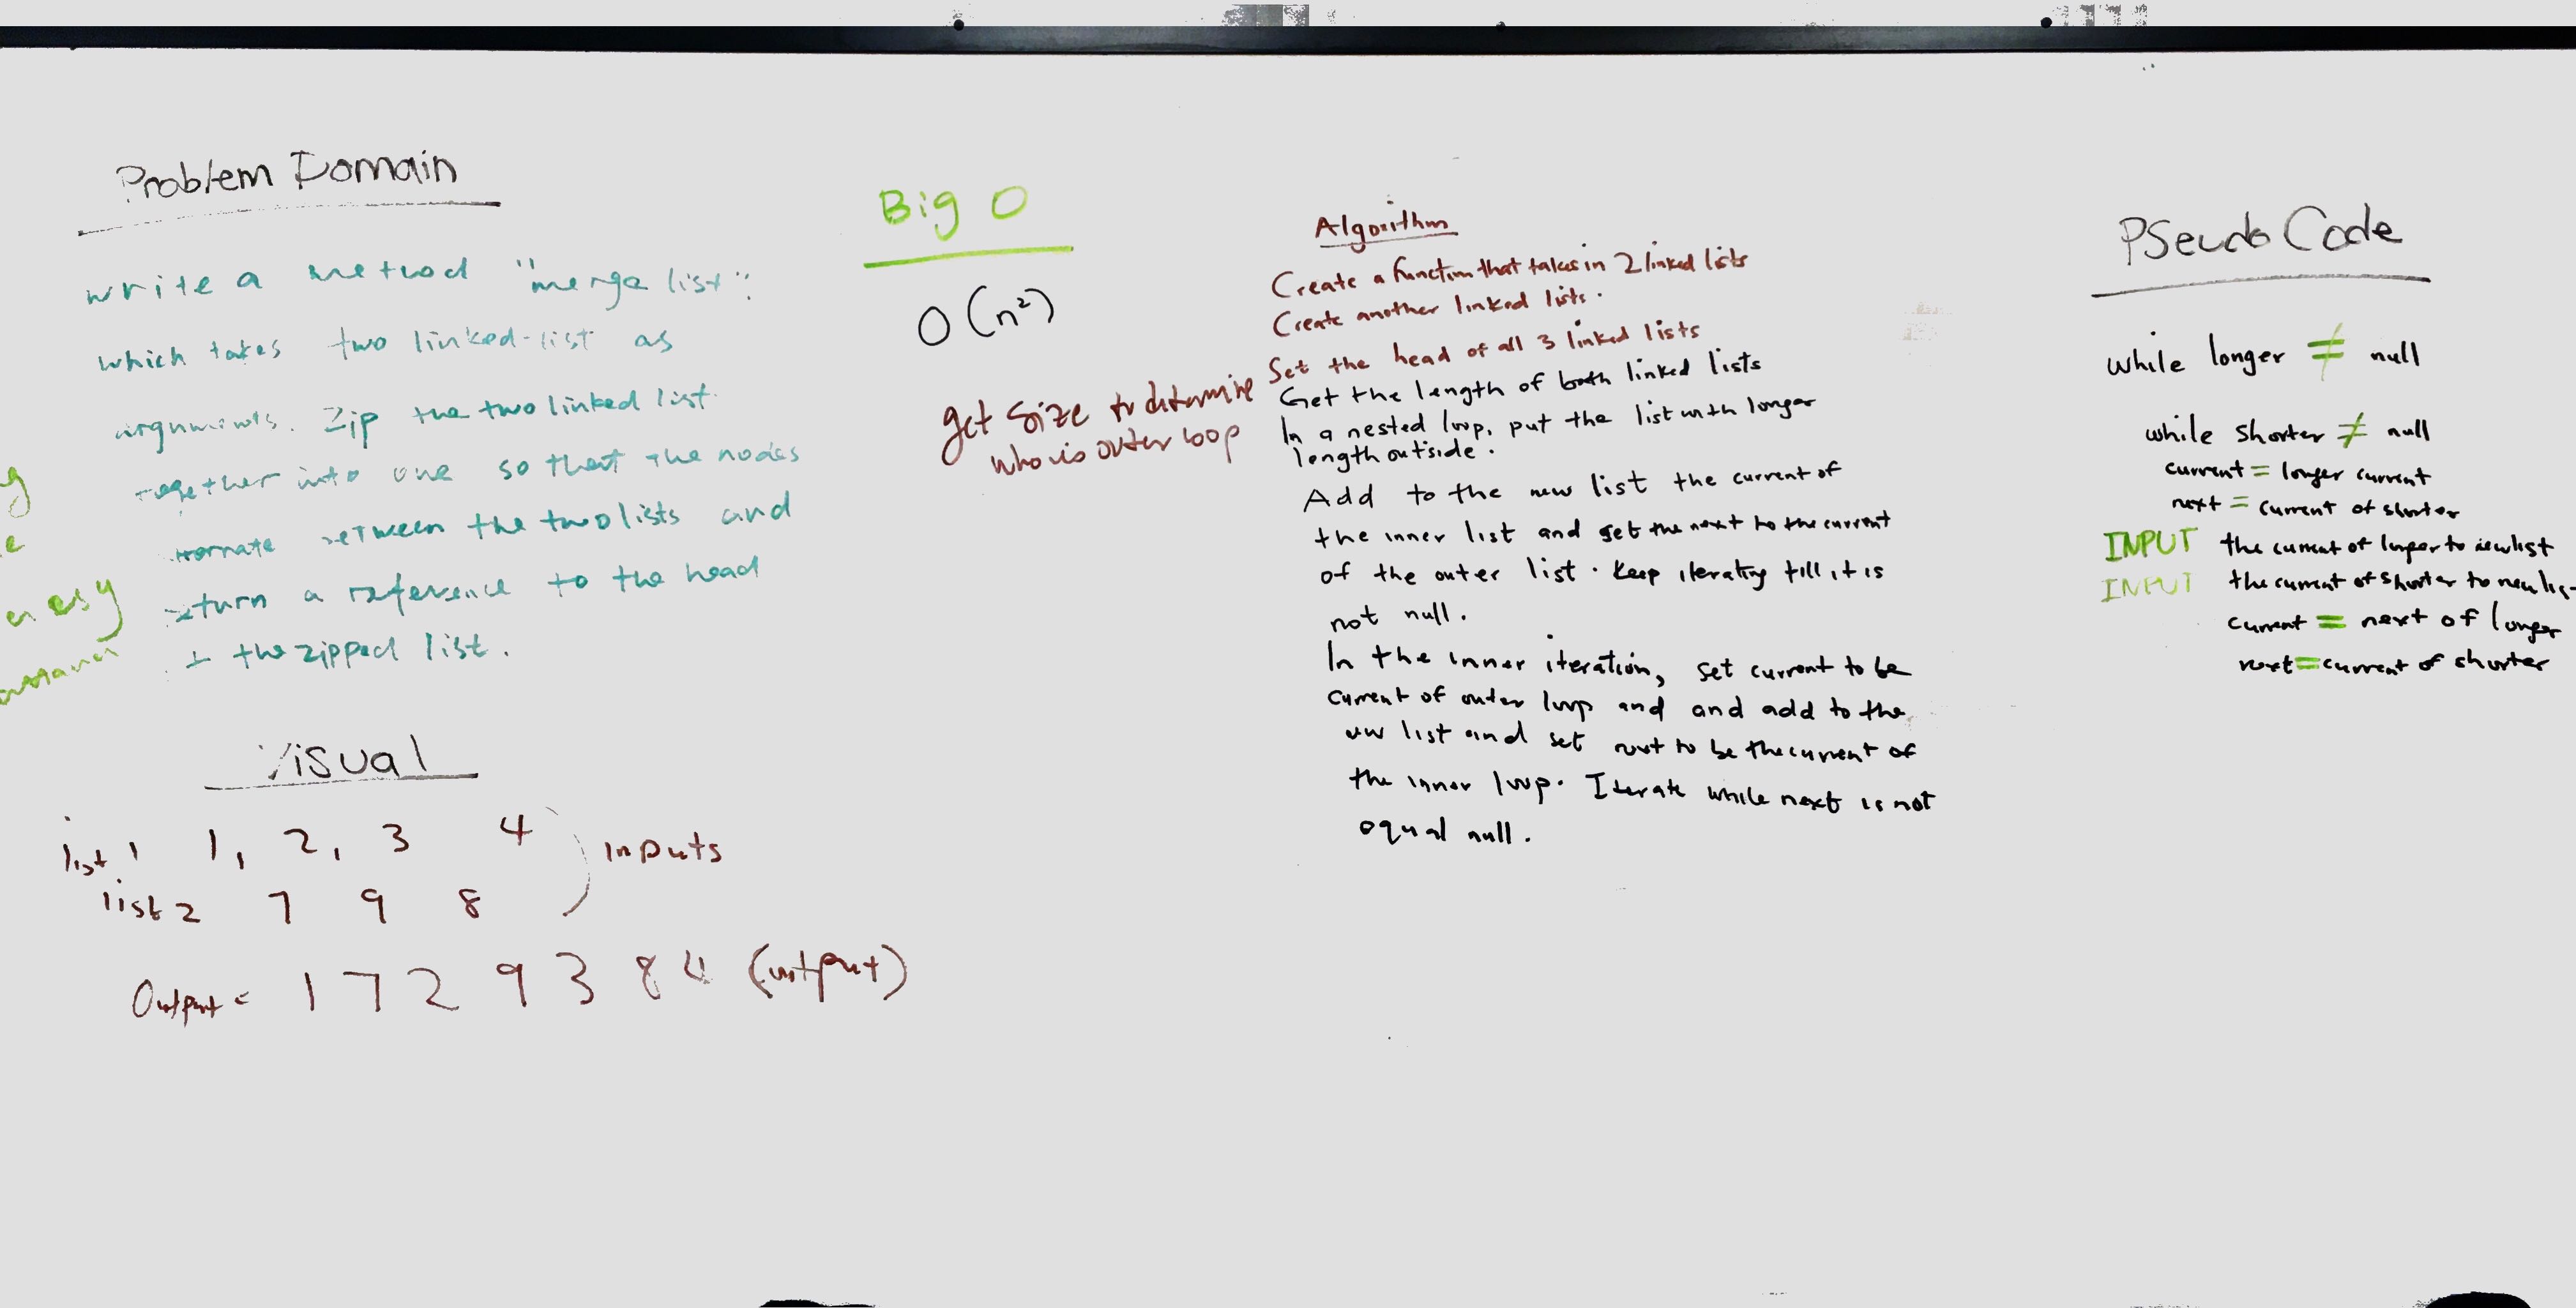 Problem Domain
write a method "merge list":
which takes two linked-list as
arguments. Zip the two linked list.
together into one so that the nodes
ternate between the two lists and
eturn a reference to the head
the zipped list.
easy
Visual
list 1 1, 2, 3 4
list 2 7 9 8
inputs
Output = 1 7 2 9 3 8 4 (output)
Big O
O(n²)
get size to determine
who is outer loop
Algorithm
Create a function that takes in 2 linked lists
Create another linked lists.
Set the head of all 3 linked lists
Get the length of both linked lists
In a nested loop, put the list with longer
length outside.
Add to the new list the current of
the inner list and set the next to the current
of the outer list. Keep iterating till it is
not null.
In the inner iteration, set current to be
current of outer loop and and add to the
new list and set next to be the current of
the inner loop. Iterate while next is not
equal null.
PSeudo Code
while longer ≠ null
while shorter ≠ null
current = longer current
next = current of shorter
INPUT the current of longer to newlist
INPUT the current of shorter to new list
current = next of longer
next = current of shorter